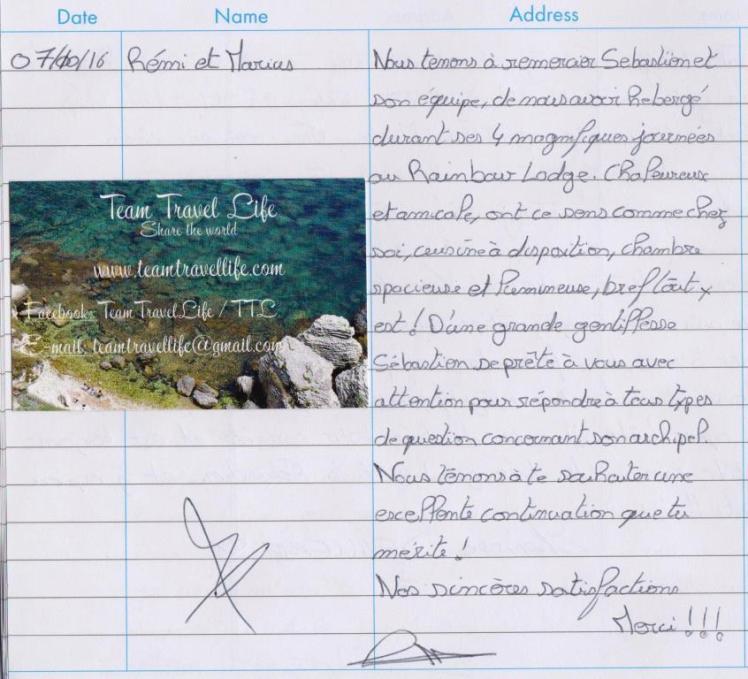 Date Name Address
07/10/16 Rémi et Marius
Nous tenons à remercier Sebastien et
son équipe, de nous avoir hebergé
durant ses 4 magnifiques journées
au Rainbow Lodge. Chaleureux
et amicale, ont ce sens comme chez
soi, cuisine à disposition, chambre
spacieuse et lumineuse, bref tout y
est ! D'une grande gentillesse
Sébastien se prête à vous avec
attention pour répondre à tous types
de question concernant son archipel.
Nous tenons à te souhaiter une
excellente continuation que tu
mérite !
Nos sincères satisfactions
Merci !!!
Team Travel Life
Share the world
www.teamtravellife.com
Facebook: Team Travel Life / TTL
E-mail: teamtravellife@gmail.com